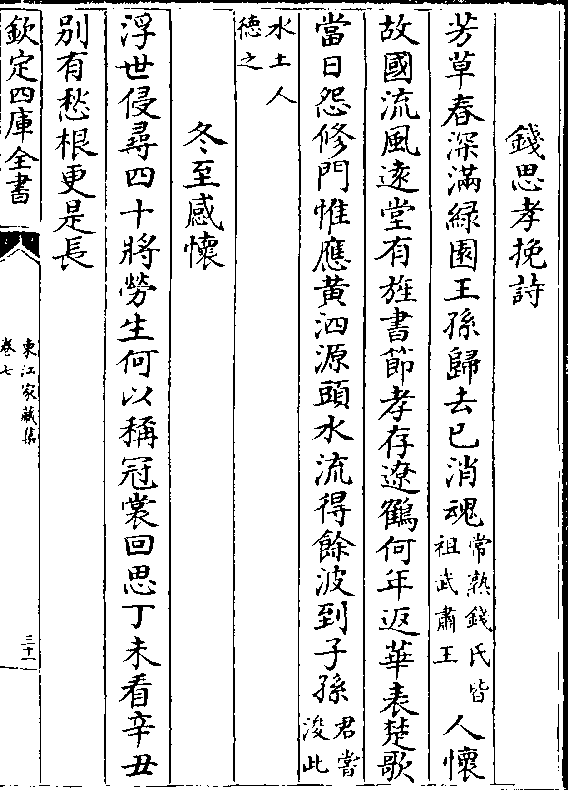 錢思孝挽詩
芳草春深滿緑園王孫歸去已消魂常熟錢氏皆祖武肅王人懷
故國流風遠堂有旌書節孝存遼鶴何年返華表楚歌
當日怨修門惟應黄泗源頭水流得餘波到子孫君嘗浚此
水土人德之
冬至感懷
浮世侵尋四十將勞生何以稱冠裳回思丁未看辛丑
别有愁根更是長
欽定四庫全書
東江家藏集
卷七
三十一